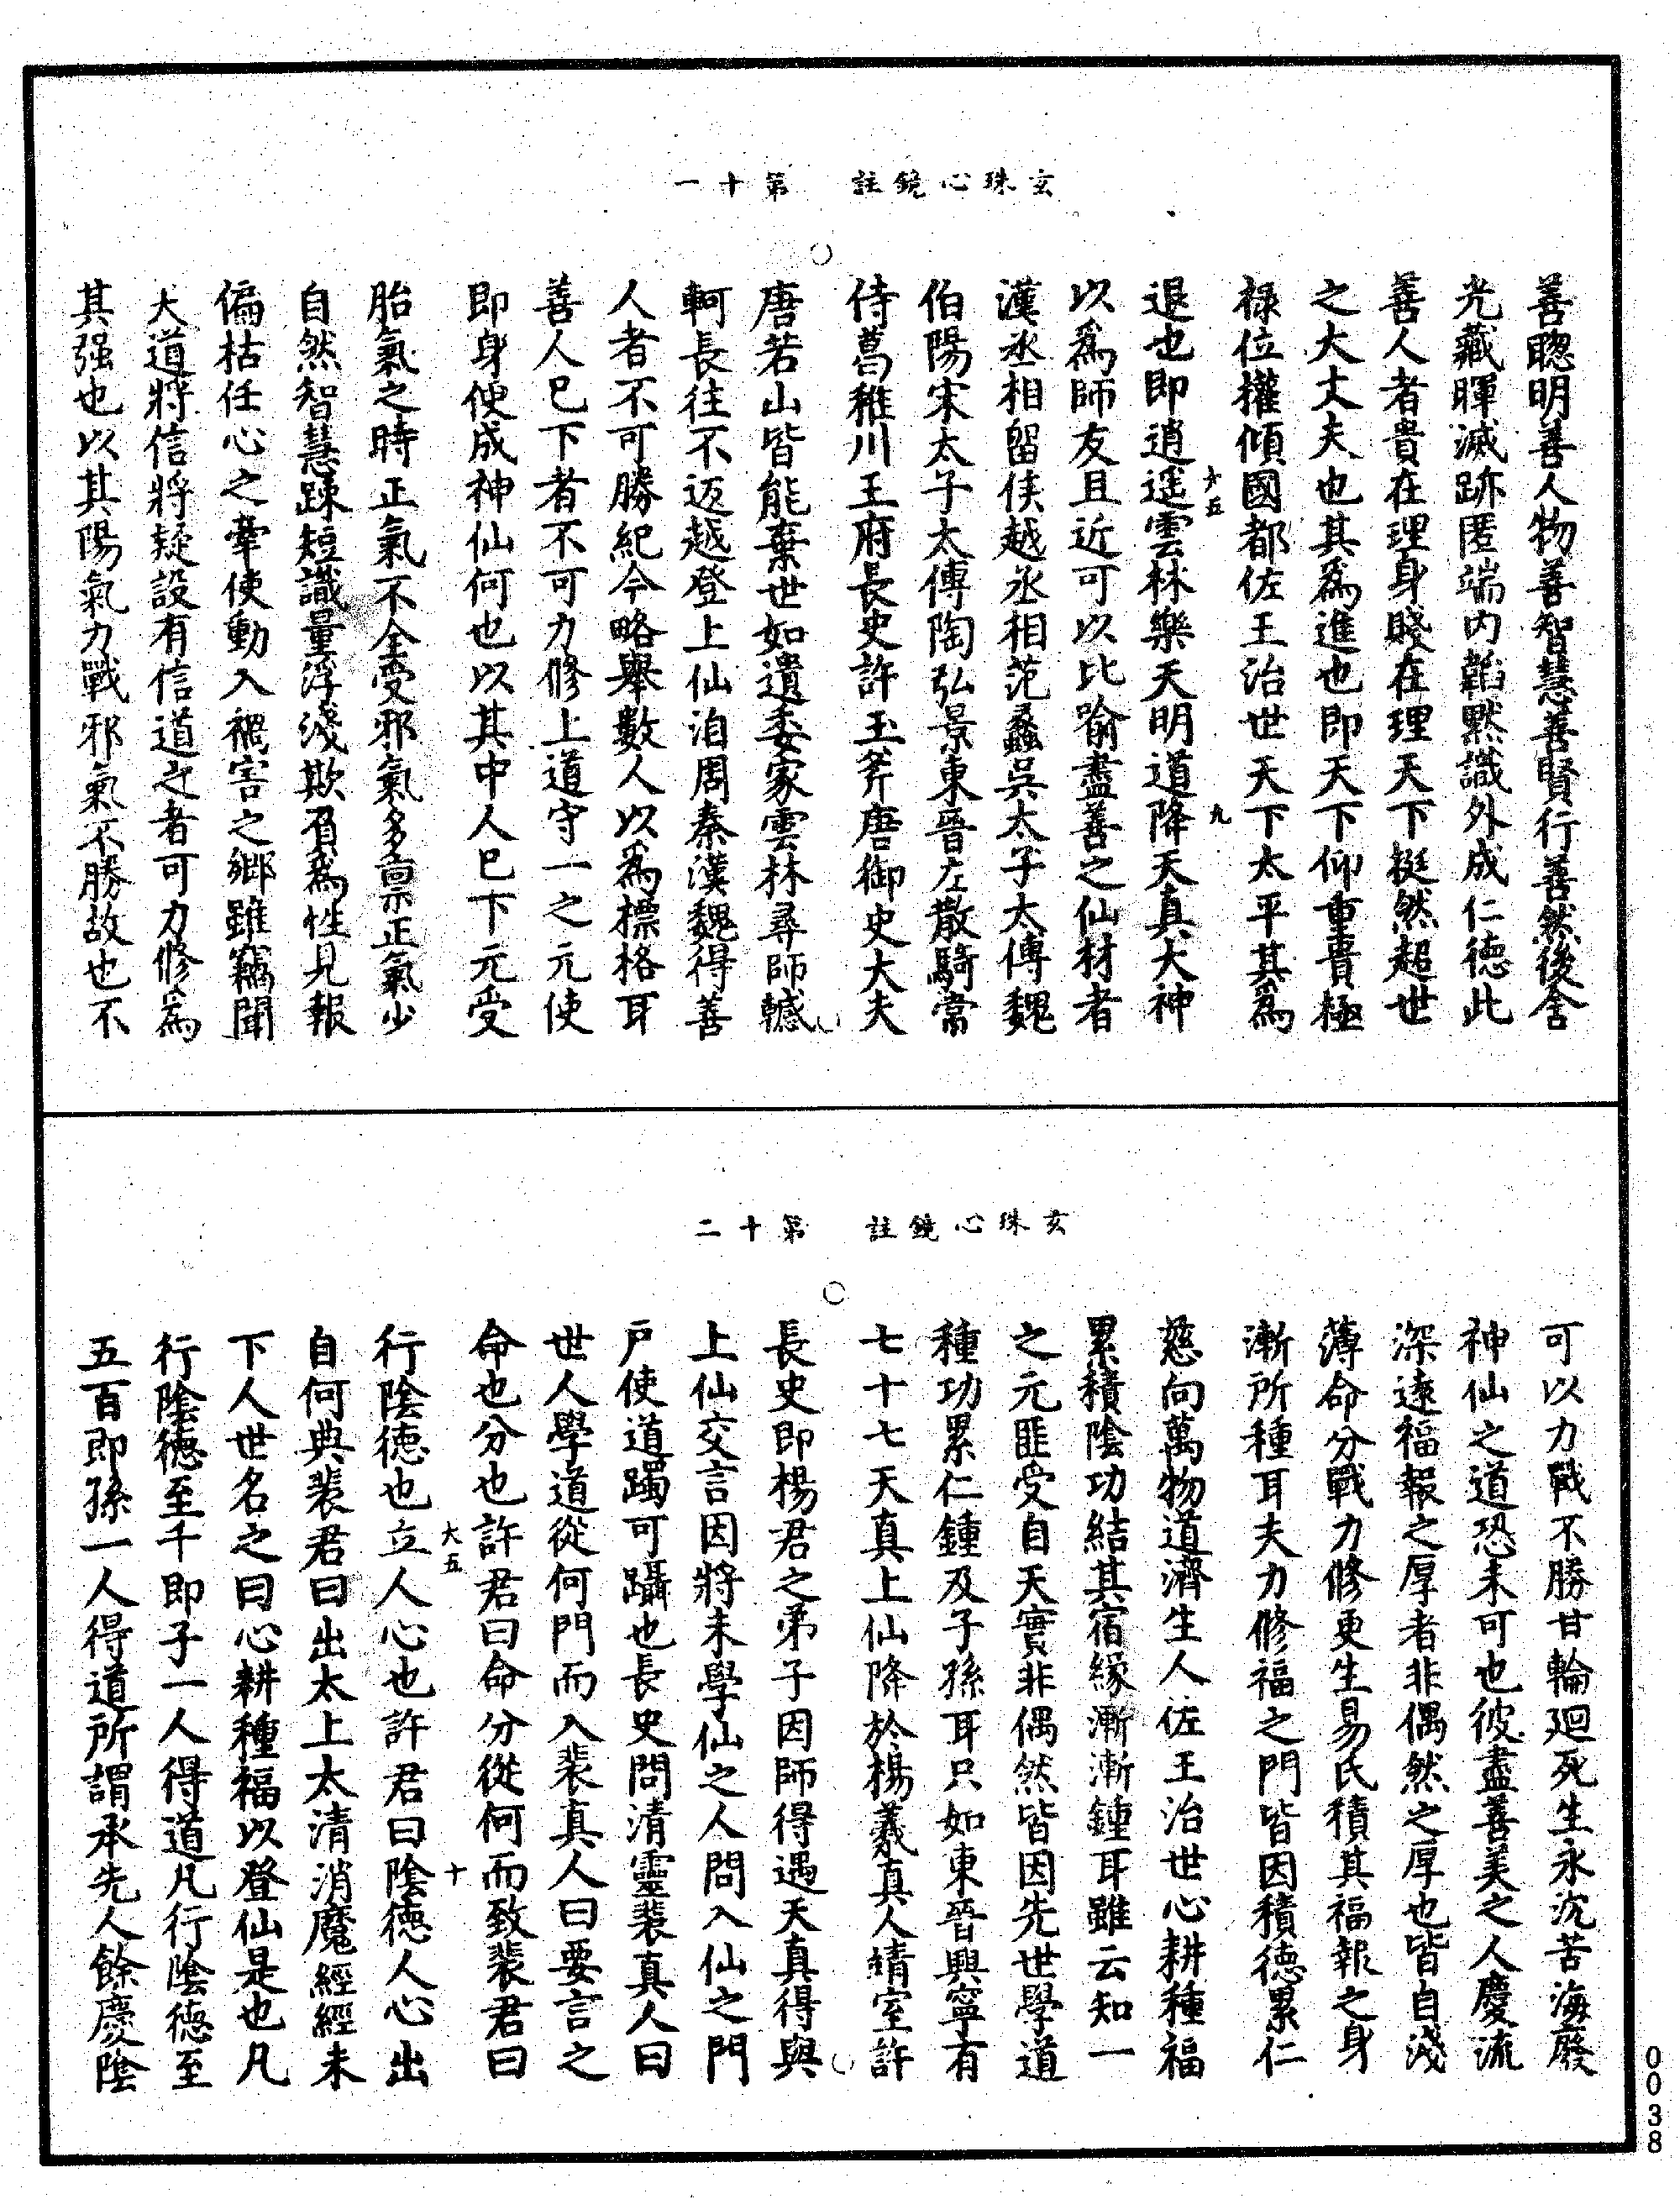 玄珠心鏡註　第十一
善聰明善人物善智慧善賢行善然後含
光藏暉滅跡匿端內韜默識外成仁德此
善人者貴在理身賤在理天下挺然超世
之大丈夫也其爲進也即天下仰重貴極
祿位權傾國都佐王治世天下太平其爲
十五　九
退也即逍遥雲林樂天明道降天真大神
以爲師友且近可以比喻盡善之仙材者
漢丞相留侯越丞相范蠡吳太子太傅魏
伯陽宋太子太傅陶弘景東晉左散騎常
侍葛稚川王府長史許玉斧唐御史大夫
唐若山皆能棄世如遺委家雲林尋師轗
軻長往不返越登上仙洎周秦漢魏得善
人者不可勝紀今略舉數人以爲標格耳
善人已下者不可力修上道守一之元使
即身使成神仙何也以其中人已下元受
胎氣之時正氣不全受邪氣多禀正氣少
自然智慧踈短識量浮淺欺負爲性見報
偏枯任心之牽使動入禍害之鄉雖竊聞
大道將信將疑設有信道之者可力修爲
其强也以其陽氣力戰邪氣不勝故也不
玄珠心鏡註　第十二
可以力戰不勝甘輪迴死生永沈苦海廢
神仙之道恐未可也彼盡善美之人慶流
深遠福報之厚者非偶然之厚也皆自淺
薄命分戰力修更生易氏積其福報之身
漸所種耳夫力修福之門皆因積德累仁
慈向萬物道濟生人佐王治世心耕種福
累積陰功結其宿緣漸漸鍾耳雖云知一
之元匪受自天實非偶然皆因先世學道
種功累仁鍾及子孫耳只如東晉興寧有
七十七天真上仙降於楊羲真人靖室許
長史即楊君之弟子因師得遇天真得與
上仙交言因將未學仙之人問入仙之門
戶使道躅可躡也長史問清靈裴真人曰
世人學道從何門而入裴真人曰要言之
命也分也許君曰命分從何而致裴君曰
大五　十
行陰德也立人心也許君曰陰德人心出
自何典裴君曰出太上太清消魔經經未
下人世名之曰心耕種福以登仙是也凡
行陰德至千即子一人得道凡行陰德至
五百即孫一人得道所謂承先人餘慶陰
0038